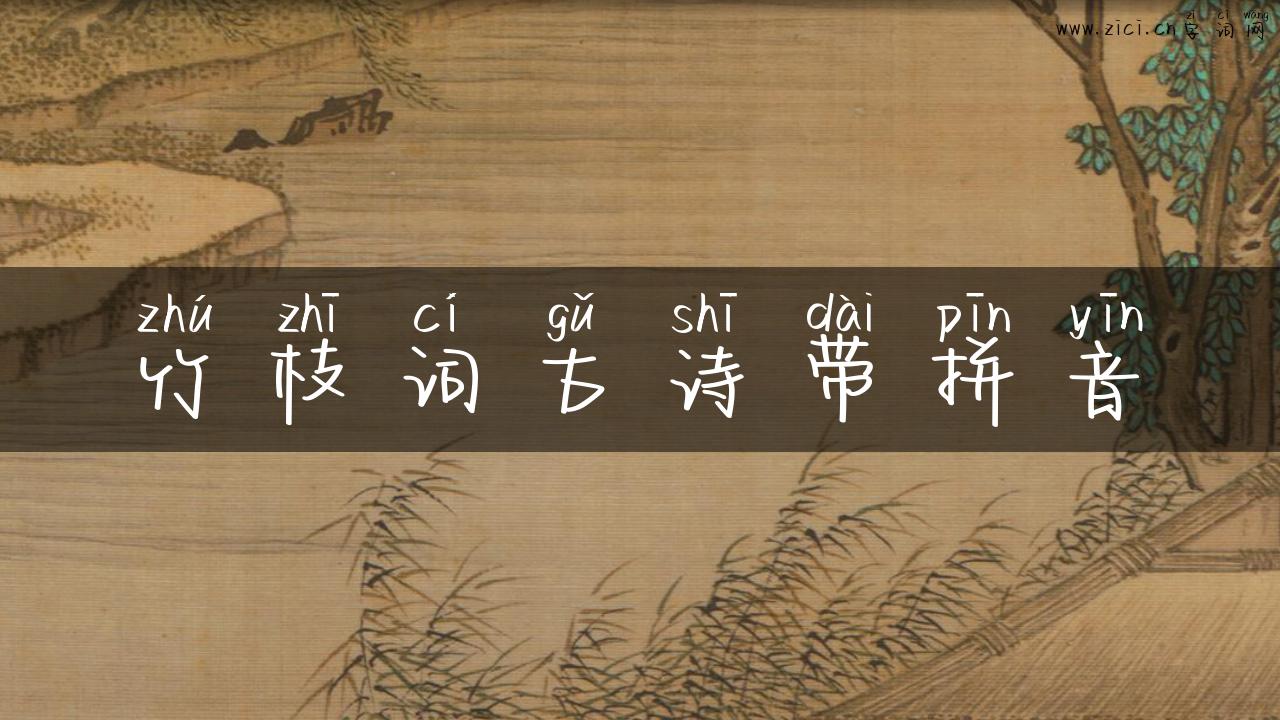 zì cí wǎng
www.zici.cn字词网
zhú zhī cí gǔ shī dài pīn yīn
竹枝词古诗带拼音